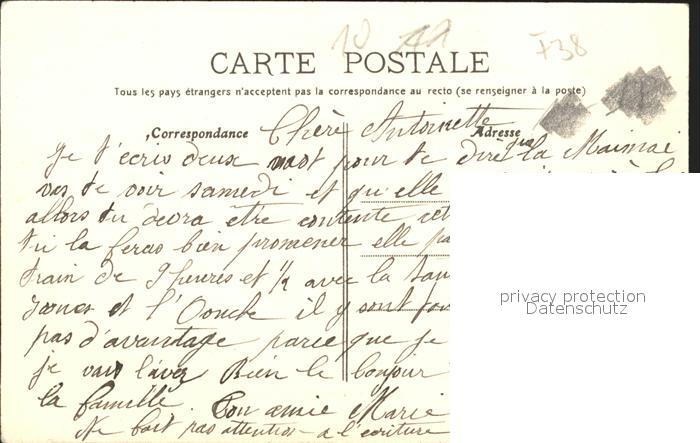 10 F38
CARTE POSTALE
Tous les pays étrangers n'acceptent pas la correspondance au recto (se renseigner à la poste)
Correspondance
Adresse
Chère Antoinette
je t'écris deux mot pour te dire que la Maman
vas te voir samedi et qu'elle
allors tu devra etre contente
tu la feras bien promener elle
train de 9 heures et ½ avec la
et l'Oncle il y sont
pas d'avantage parce que je
je vais laver Bien le bonjour
la famille. Ton amie Marie
Ne fait pas attention a l'ecriture
privacy protection
Datenschutz